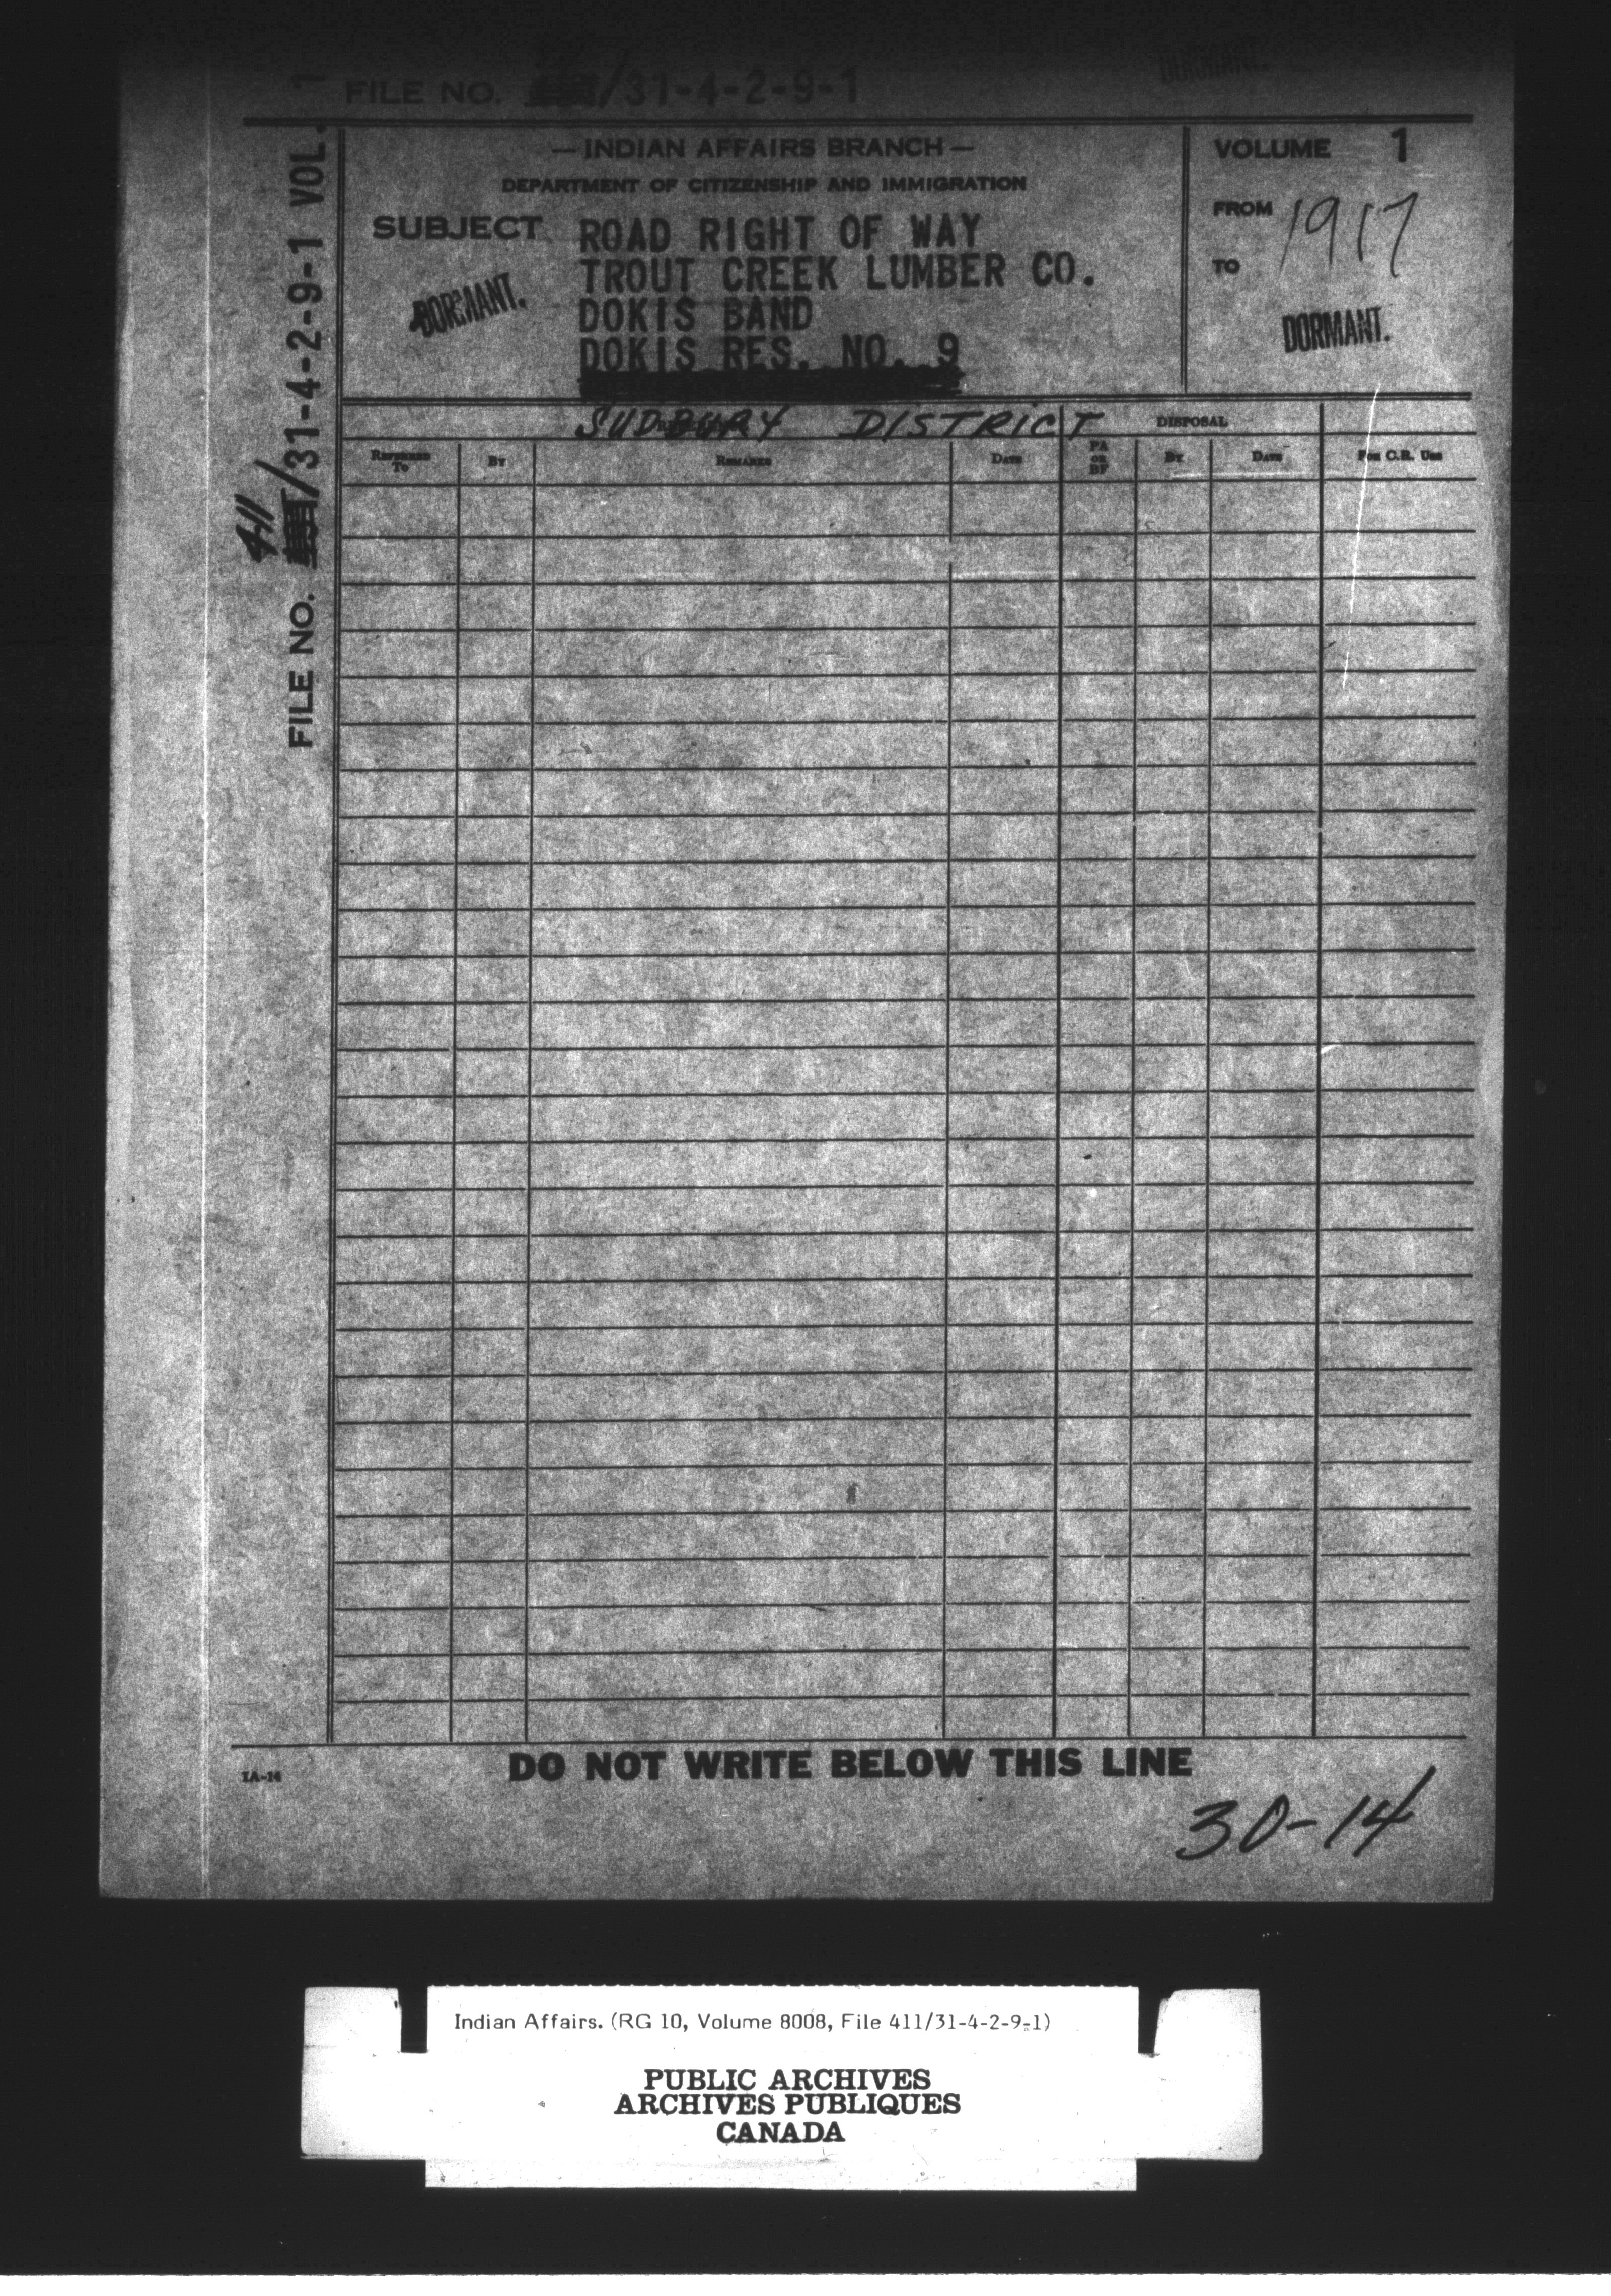 FILE NO. /31-4-2-9-1
DORMANT.
FILE NO. 411/31-4-2-9-1 VOL. 1
—INDIAN AFFAIRS BRANCH—
DEPARTMENT OF CITIZENSHIP AND IMMIGRATION
SUBJECT ROAD RIGHT OF WAY
TROUT CREEK LUMBER CO.
DOKIS BAND
DOKIS RES. NO. 9
DORMANT.
VOLUME 1
FROM 1917
TO
DORMANT.
SUDBURY DISTRICT
DISPOSAL
REFERRED TO
BY
REMARKS
DATE
PA OR BF
BY
DATE
FOR C.R. USE
DO NOT WRITE BELOW THIS LINE
IA-14
30-14
Indian Affairs. (RG 10, Volume 8008, File 411/31-4-2-9-1)
PUBLIC ARCHIVES
ARCHIVES PUBLIQUES
CANADA